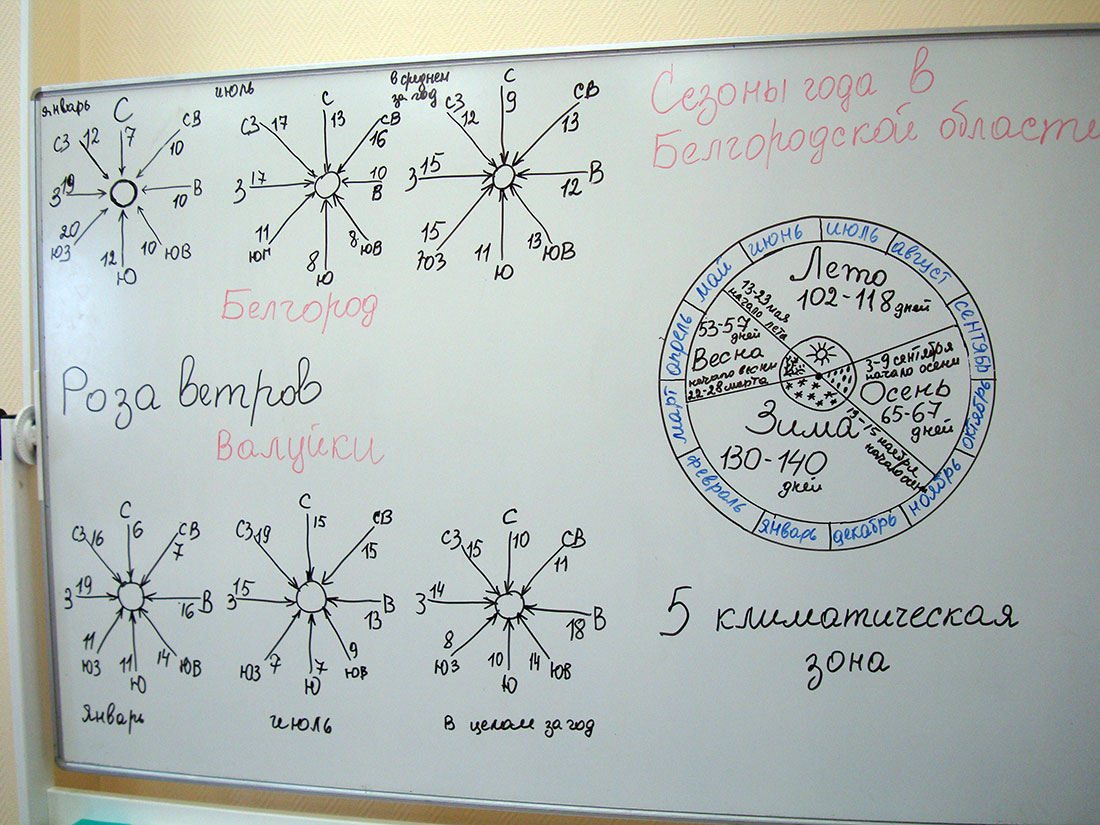 январь
С
7
СВ
10
В
10
ЮВ
10
Ю
12
ЮЗ
20
З
19
СЗ
12
июль
С
13
СВ
16
10
В
ЮВ
8
Ю
8
11
З
17
СЗ
17
в среднем
за год
С
9
СВ
13
В
12
ЮВ
13
Ю
11
ЮЗ
15
З
15
СЗ
12
Белгород
Роза ветров
Валуйки
С
6
СВ
7
В
16
ЮВ
14
Ю
11
ЮЗ
11
З
19
СЗ
16
Январь
С
15
СВ
15
В
13
ЮВ
9
Ю
7
ЮЗ
7
З
15
СЗ
19
июль
С
10
СВ
11
В
18
ЮВ
14
Ю
10
ЮЗ
8
З
14
СЗ
15
В целом за год
Сезоны года в
Белгородской области
июнь
июль
август
сентябр
октябрь
ноябрь
декабрь
январь
февраль
март
апрель
май
Лето
102-118 дней
13-23 мая
начало лета
53-57
дней
Весна
начало весны
22-28 марта
3-9 сентября
начало осени
Осень
65-67
дней
Зима
130-140
дней
13-15 ноября
начало
5 климатическая
зона